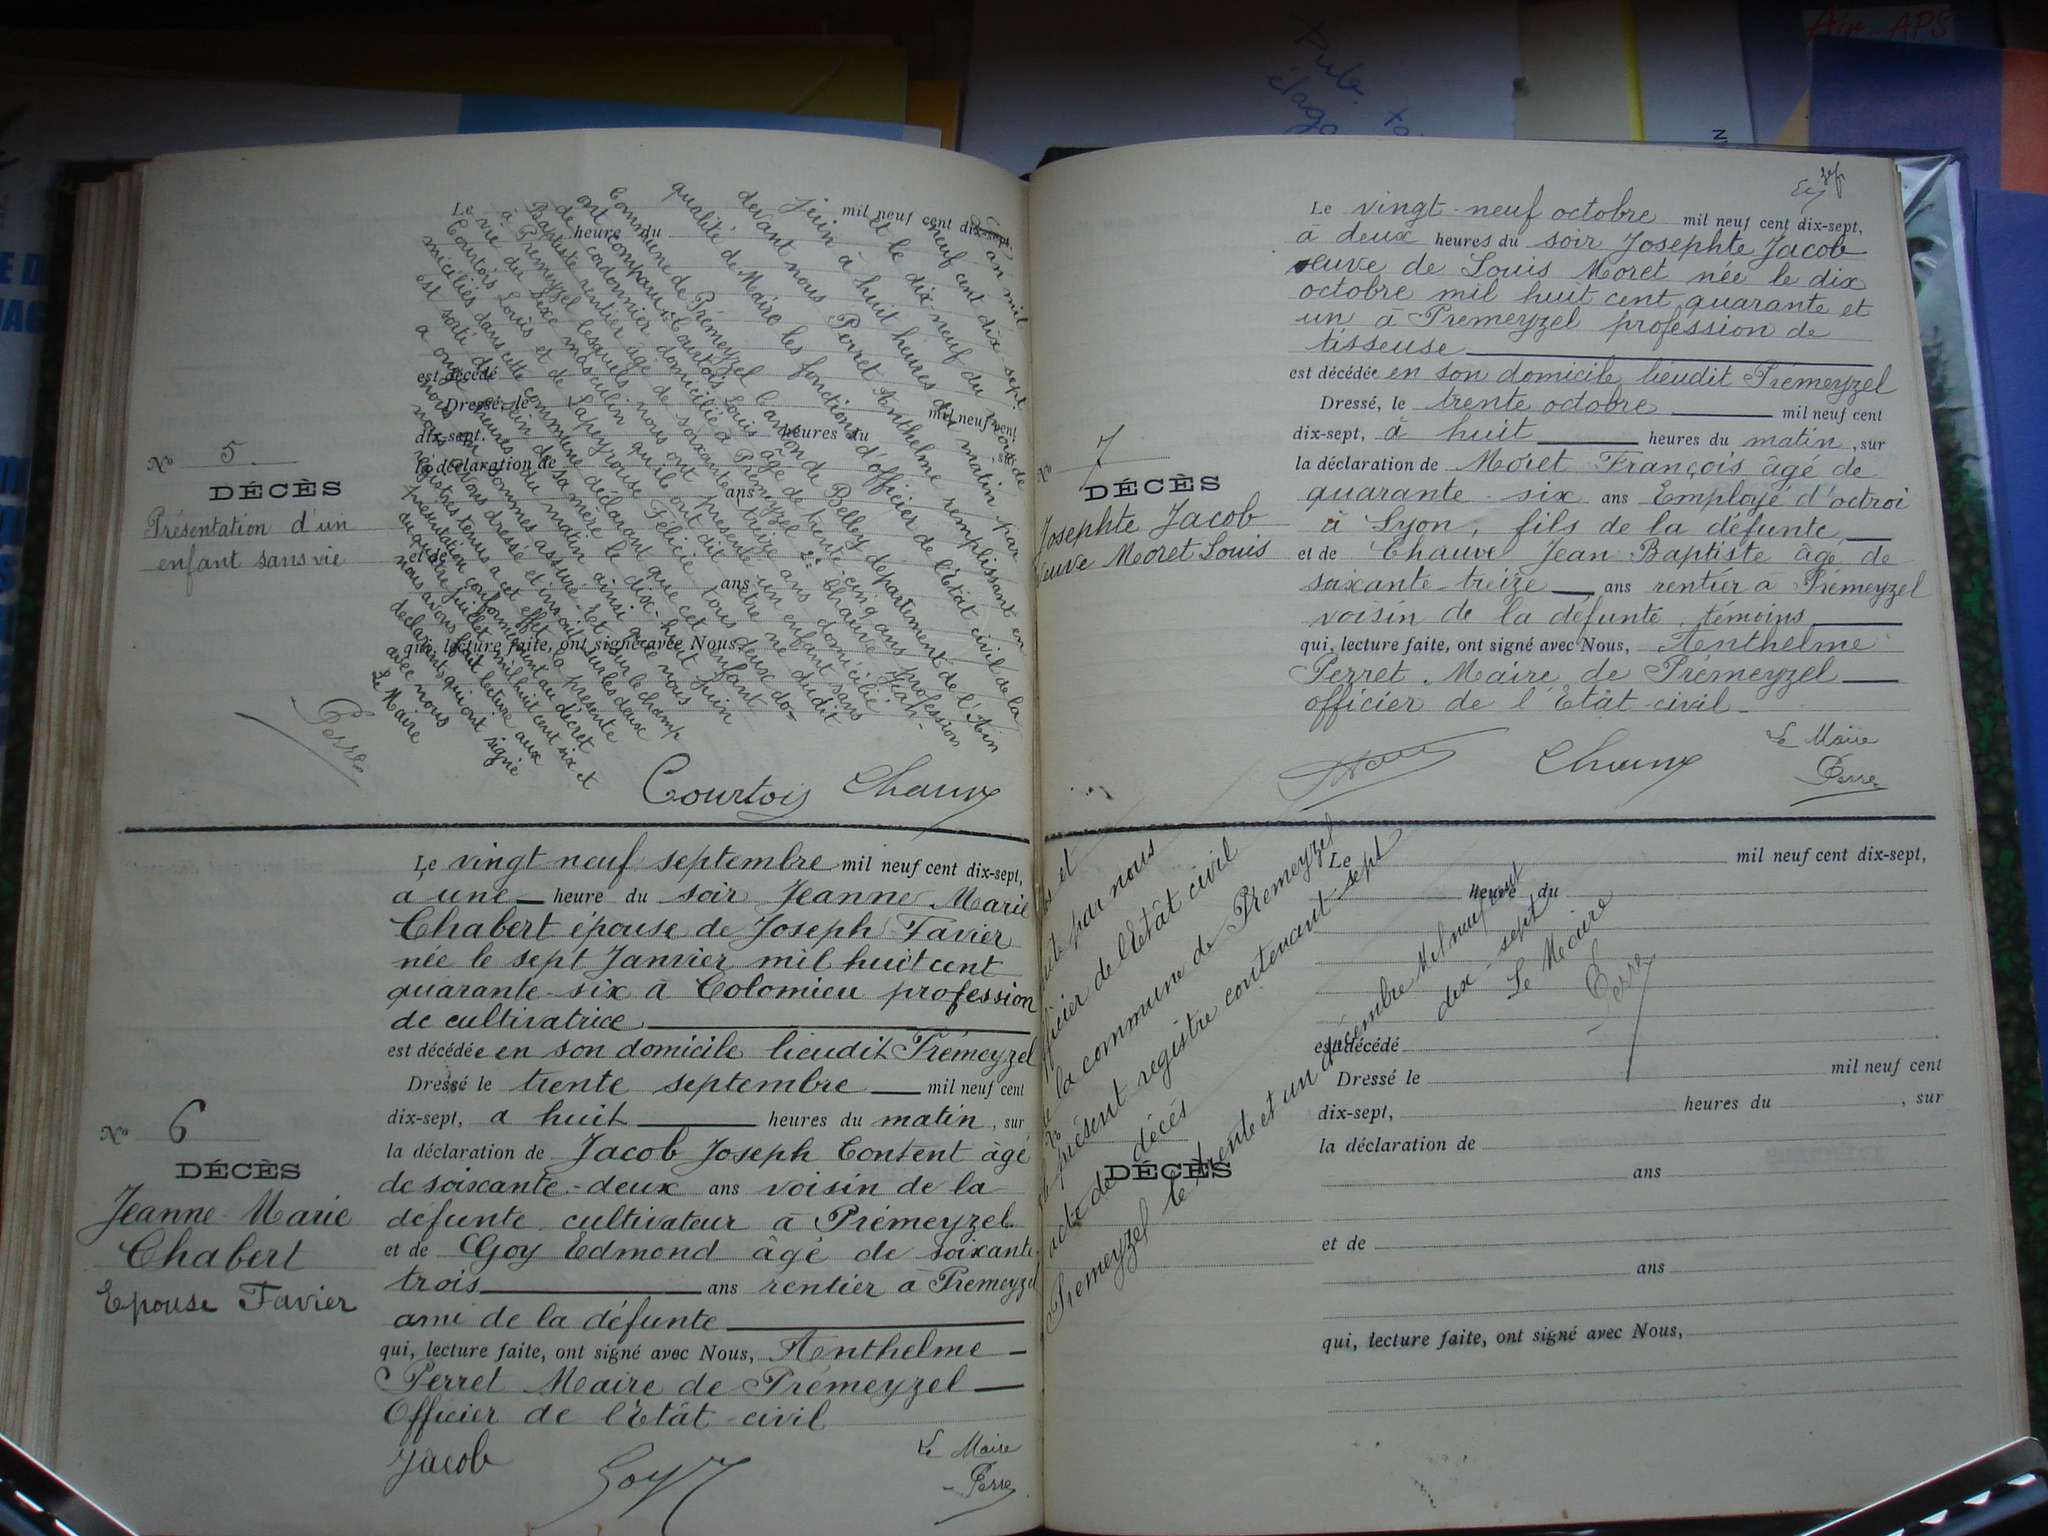 Air APS
N° 5
DÉCÈS
Présentation d'un
enfant sans vie
Le mil neuf cent dix-sept,
heure du
est décédé
Dressé, le mil neuf cent
dix-sept. heures du , sur
la déclaration de
ans
et de
ans
qui, lecture faite, ont signé avec Nous,
L'an mil
neuf cent dix sept
et le dix-neuf du mois de
juin à huit heures du matin par
devant nous Perret Anthelme remplissant en
qualité de Maire les fonctions d'officier de l'Etat civil de la
Commune de Prémeyzel Canton de Belley département de l'Ain
ont comparu Courtois Louis âgé de trente-cinq ans profession
de cordonnier domicilié à Prémeyzel 2° Chauve Jean-
Baptiste rentier âgé de soixante treize ans domicilié
à Prémeyzel lesquels nous ont présenté un enfant sans
vie du sexe masculin qu'ils ont dit être né dudit
Courtois Louis et de Lapeyrouse Félicie tous deux do-
miciliés dans cette commune déclarant que cet enfant
est sorti du sein de sa mère le dix-huit juin
a onze heures du matin ainsi que nous
nous en sommes assuré. Et sur le champ
Nous dressé et inscrit sur les deux
registres tenus à cet effet la présente
présentation conformément au décret
du quatre juillet mil huit cent six et
nous avons fait lecture aux
déclarants qui ont signé
avec nous
Le Maire
Perret
Courtois Chauve
N° 6
DÉCÈS
Jeanne Marie
Chabert
Epouse Favier
Le vingt neuf septembre mil neuf cent dix-sept,
a une heure du soir Jeanne Marie
Chabert épouse de Joseph Favier
née le sept Janvier mil huit cent
quarante-six à Colomieu profession
de cultivatrice
est décédée en son domicile lieudit Prémeyzel
Dressé le trente septembre mil neuf cent
dix-sept, a huit heures du matin, sur
la déclaration de Jacob Joseph Content âgé
de soixante-deux ans voisin de la
défunte cultivateur à Prémeyzel
et de Goy Edmond âgé de soixante
trois ans rentier à Prémeyzel
ami de la défunte
qui, lecture faite, ont signé avec Nous, Anthelme
Perret Maire de Prémeyzel
Officier de l'Etât-civil
Jacob Goy Le Maire
Perret
N° 7
DÉCÈS
Josephte Jacob
veuve Moret Louis
Le vingt-neuf octobre mil neuf cent dix-sept,
à deux heures du soir Josephte Jacob
veuve de Louis Moret née le dix
octobre mil huit cent quarante et
un à Prémeyzel profession de
tisseuse
est décédée en son domicile lieudit Prémeyzel
Dressé, le trente octobre mil neuf cent
dix-sept, à huit heures du matin, sur
la déclaration de Moret François âgé de
quarante-six ans Employé d'octroi
à Lyon, fils de la défunte,
et de Chauve Jean Baptiste âgé de
soixante-treize ans rentier a Prémeyzel
voisin de la défunte, témoins
qui, lecture faite, ont signé avec Nous, Anthelme
Perret Maire de Prémeyzel
officier de l'Etât-civil
Chauve Le Maire
Perret
DÉCÈS
Le mil neuf cent dix-sept,
heure du
est décédé
Dressé le mil neuf cent
dix-sept, heures du , sur
la déclaration de
ans
et de
ans
qui, lecture faite, ont signé avec Nous,
et
par nous
officier de l'Etât civil
de la commune de Prémeyzel
le présent registre contenant sept
acte de décés
Prémeyzel le trente et un décembre Mil neuf cent
dix-sept
Le Maire
Perret